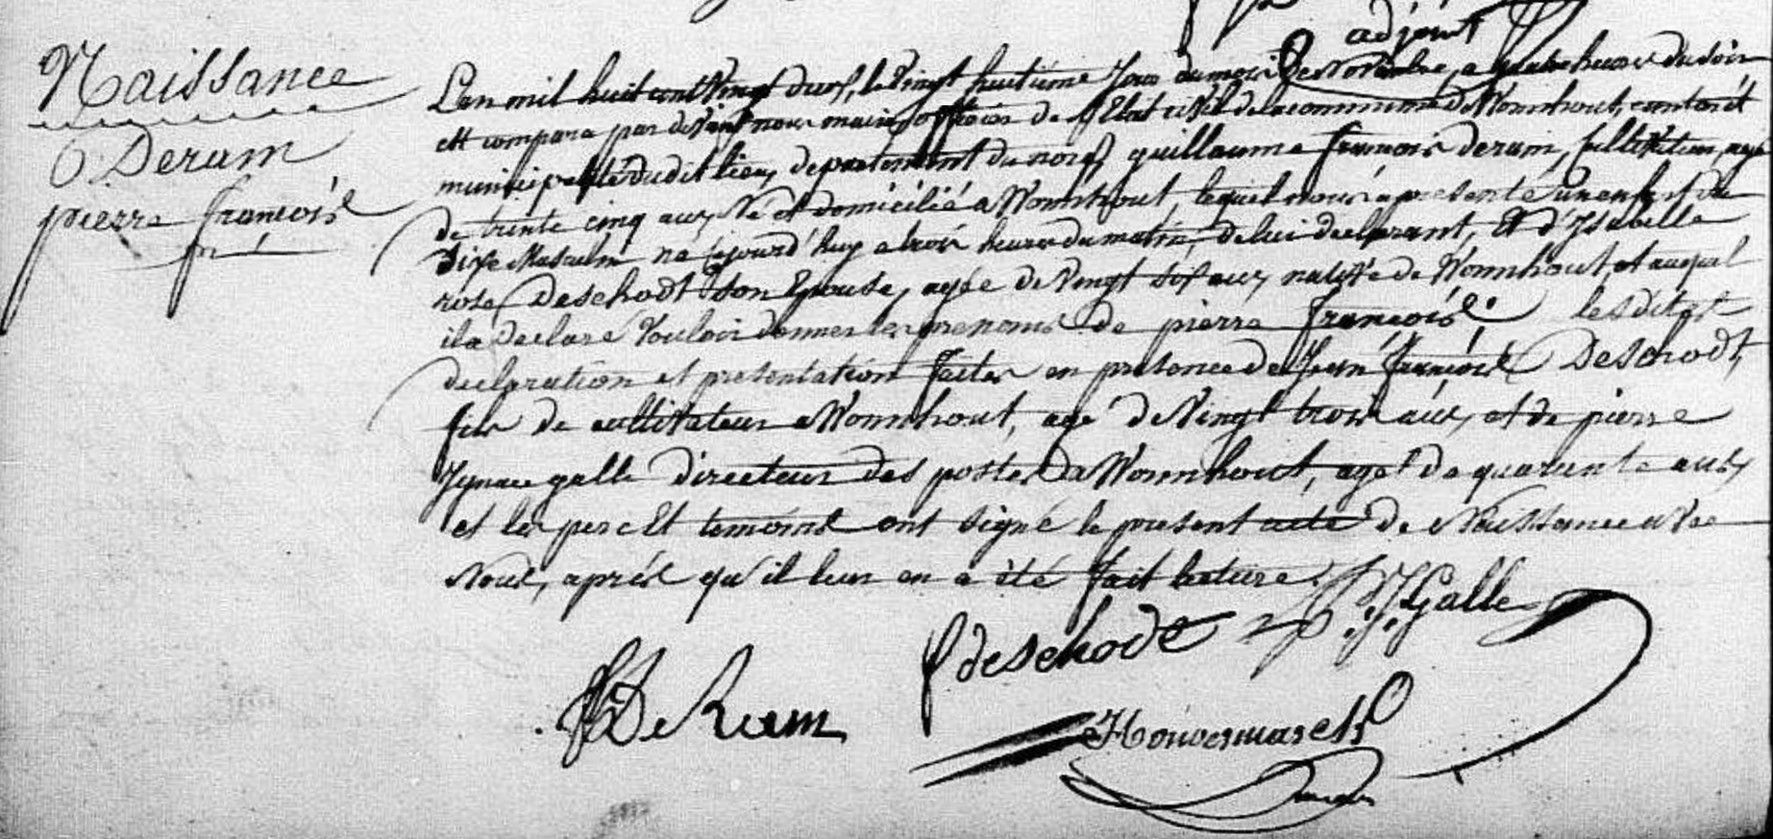 adjoint
Naissance
Deram
pierre françois
né
L'an mil huit cent Vingt deux, le Vingt huitième Jour du mois De Novembre, a quatre heures du soir
est comparu par devant nous maire, officier de l'Etat civil de la commune de Wormhout, canton et
municipalité dudit lieu, departement du nord, guillaume françois deram, cultivateur, agé
de trente cinq ans, Né et domicilié a Wormhout, lequel nous a presenté un enfant du
Sixe Masculin né cejourd'huy a trois heures du matin, de lui declarant, et d'Isabelle
rose Deschodt son Epouse, agée de Vingt six ans, native de Wormhout, et auquel
il a declaré Vouloir donner les prenoms de pierre françois. lesdites
declaration et presentation faites en presence de Jean françois Deschodt,
fils de cultivateur a Wormhout, agé de Vingt trois ans, et de pierre
Ignace galle directeur des postes a Wormhout, agé de quarante ans,
et les pere Et temoins ont signé le present acte de Naissance avec
Nous, après qu'il leur en a été fait lecture
J. Galle
f deschodt
De Ram